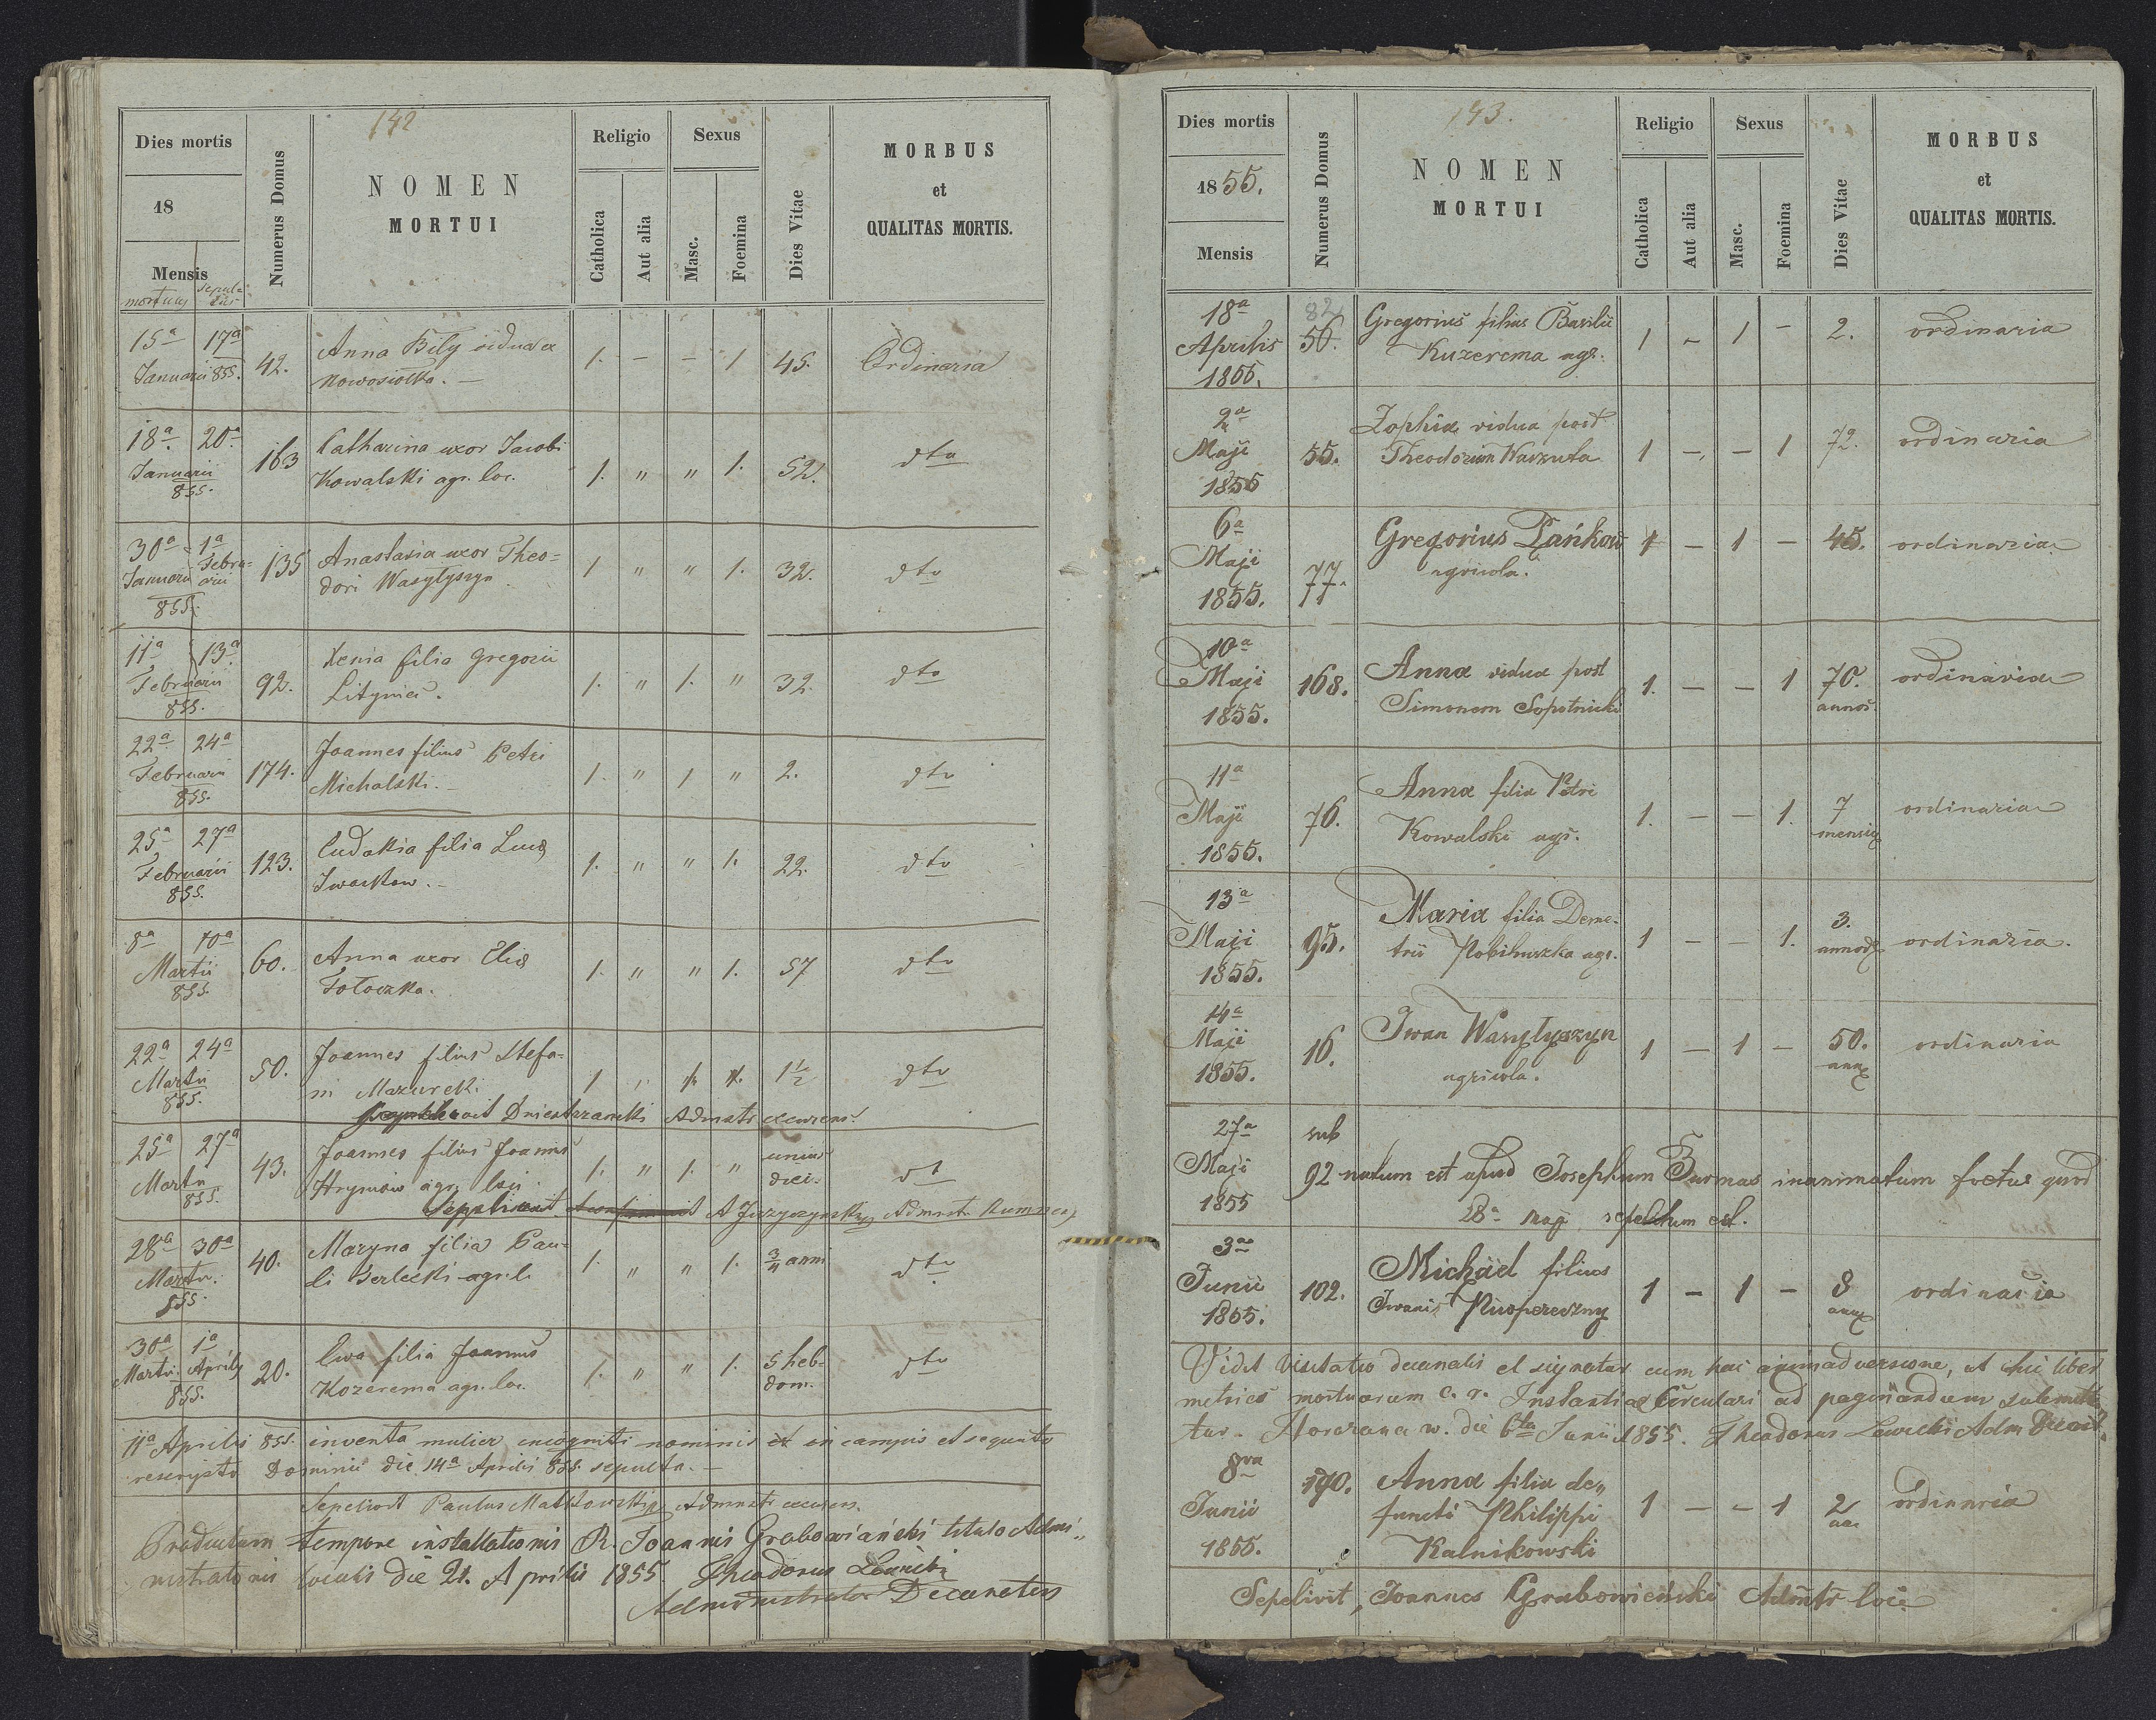 142
Dies mortis
18
Mensis
mortuus sepultus
Numerus Domus
NOMEN
MORTUI
Religio
Catholica
Aut alia
Sexus
Masc.
Foemina
Dies Vitae
MORBUS
et
QUALITAS MORTIS.
15a 17a
Januarii 855. 42. Anna Bily vidua a 1. — — 1 45. Ordinaria
Nowosiolka. —
18a. 20a.
Januarii 163 Catharina uxor Jacobi 1. " " 1. 52. dto
855. Kowalski agr. loc.
30a 1a
Januarii Februarii 135 Anastasia uxor Theo= 1 " " 1. 32. dto
855. dori Wasyłyszyn
11a 13a
Februarii 92. Xenia filia Gregorii 1. " 1. " 32. dto
855. Lityniec.
22a 24a
Februarii 174. Joannes filius Petri 1. " 1 " 2. dto
855. Michalski. —
25a 27a
Februarii 123. Eudokia filia Lucæ 1. " " 1. 22. dto
855. Iwaskow. —
8a 10a
Martii 60. Anna uxor Eliæ 1. " " 1. 57 dto
855. Tołoczko.
22a 24a
Martii 50. Joannes filius Stefa= 1 " 1. 1. 1½ dto
855. ni Mazurek.
Dniestrzanski Admstr excurens.
25a 27a
Martii 43. Joannes filius Joannis 1. " 1. " unius dt
855. Hryniow agr. loci. diei.
Sepelivit A Juzyczynsky Admnstr.
28a 30a
Martii. 40. Maryna filia Pau= 1. " " 1. ¾ anni dto
855. li Terlecki agr. l.
30a 1a
Martii Aprilis 20. Ewa filia Joannis 1. " " 1. 5 heb= dto
855. Kozerema agr. loc. dom.
11a Aprilis 855. inventa mulier incogniti nominis in campis et sequito
rescripto Dominii die 14a Aprilis 855 sepulta. —
Sepelivit Paulus Matkowski Admnstr excurens.
Productum tempore installationis R. Joannis Grabowiański titulo Admi„
nistrationis localis die 21. Aprilis 1855. Theodorus Lewicki
Administrator Decanatus
143.
Dies mortis
1855.
Mensis
Numerus Domus
NOMEN
MORTUI
Religio
Catholica
Aut alia
Sexus
Masc.
Foemina
Dies Vitae
MORBUS
et
QUALITAS MORTIS.
18a 82
Aprilis 56. Gregorius filius Basilii 1 — 1 — 2. ordinaria
1855. Kuzerema agr.
2a
Maji 55. Zophia vidua post 1 — — 1 72. ordinaria
1855 Theodorum Waszuta
6a
Maji 77. Gregorius Pańkow 1 — 1 — 45. ordinaria
1855. 77 agricola.
10a
Maji 168. Anna vidua post 1. — — 1 70. ordinaria
1855. Simonem Sopotnicki annos.
11a
Maji 76. Anna filia Petri 1. — — 1. 7 ordinaria
1855. Kowalski agr. mensiū
13a
Maji 95. Maria filia Deme- 1 — — 1. 3. ordinaria.
1855. trii Robihuszka agr.
14a
Maji 16. Iwan Wasyłyszyn 1 — 1 — 50. ordinaria
1855. agricola.
27a sub
Maji 92 natum est apud Josephum Burmas inanimatum foetus quod
1855 28a Maji sepultum est.
3a
Junii 102. Michäel filius 1 — 1 — 8 ordinaria
1855. Iwanis
Vidit visitatio decanalis et signatur cum hac animadversione, ut hic liber
metrices mortuorum c. r. Instantiæ Circulari ad paginandum submitta
tur. Horozana w. die 6ta Junii 1855. Theodorus Lewicki Adm Decant.
8va
Junii 190. Anna filia de„ 1 — — 1 2 ordinaria
1855. functi Philippi
Kalnikowski
Sepelivit, Joannes Grabowieński Admstr loci